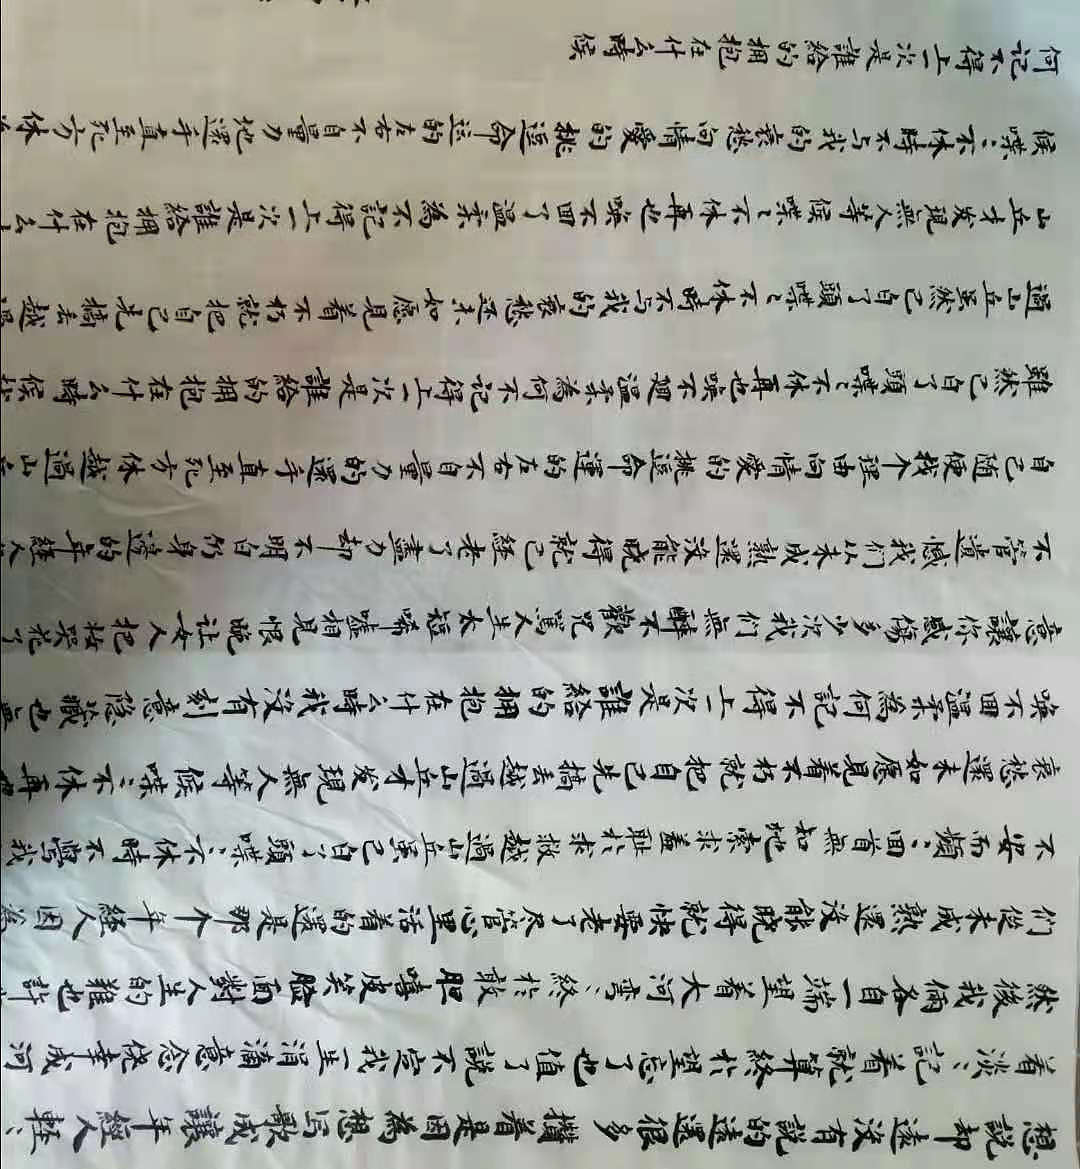 想說却還沒有說的還很多攢着是因為想写歌成讓年經人輕、
着淡、記着就算終於望忘了也值了說不定我一生涓滴意念僥幸成河
然後我倆各自一端望着大河彎、終於敢胆嘻皮笑臉面對人生的難也許
們從未成熟還沒能曉得就快要老了尽管心里活着的還是那个年經人因為
不安而頻、回首無知地索求羞耻於求救越過山丘虽已白了頭喋、不休時不與我
哀愁還未如愿見着不朽就把自己先搞丢越過山丘才发現無人等候喋、不休再也
喚不回溫柔為何記不得上一次是誰給的拥抱在什么時我沒有刻意隐藏也無
意讓你感傷多少次我們無醉不歡咒罵人生太短唏嘘相見恨晚让女人把妝哭花了
不管遺憾我們从未成熟還沒能曉得就已經老了盡力却不明白仍身邊的年經人
自己随便找个理由向情愛的挑逗命運的左右不自量力的還手直至死方休越過山
雖然已白了頭喋々不休再也喚不廻溫柔為何不记得上一次是誰給的拥抱在什么時候
過山丘虽然已白了頭喋々不休時不与我的哀愁还未如愿見着不朽就把自己先搞丢越
山丘才发現無人等候喋々不休再也喚不回了溫柔為不記得上一次是誰給拥抱在什么
候喋、不休時不与我的哀愁向情愛的挑逗命运的左右不自量力地還手直至死方休
何记不得上一次是誰給的拥抱在什么時候